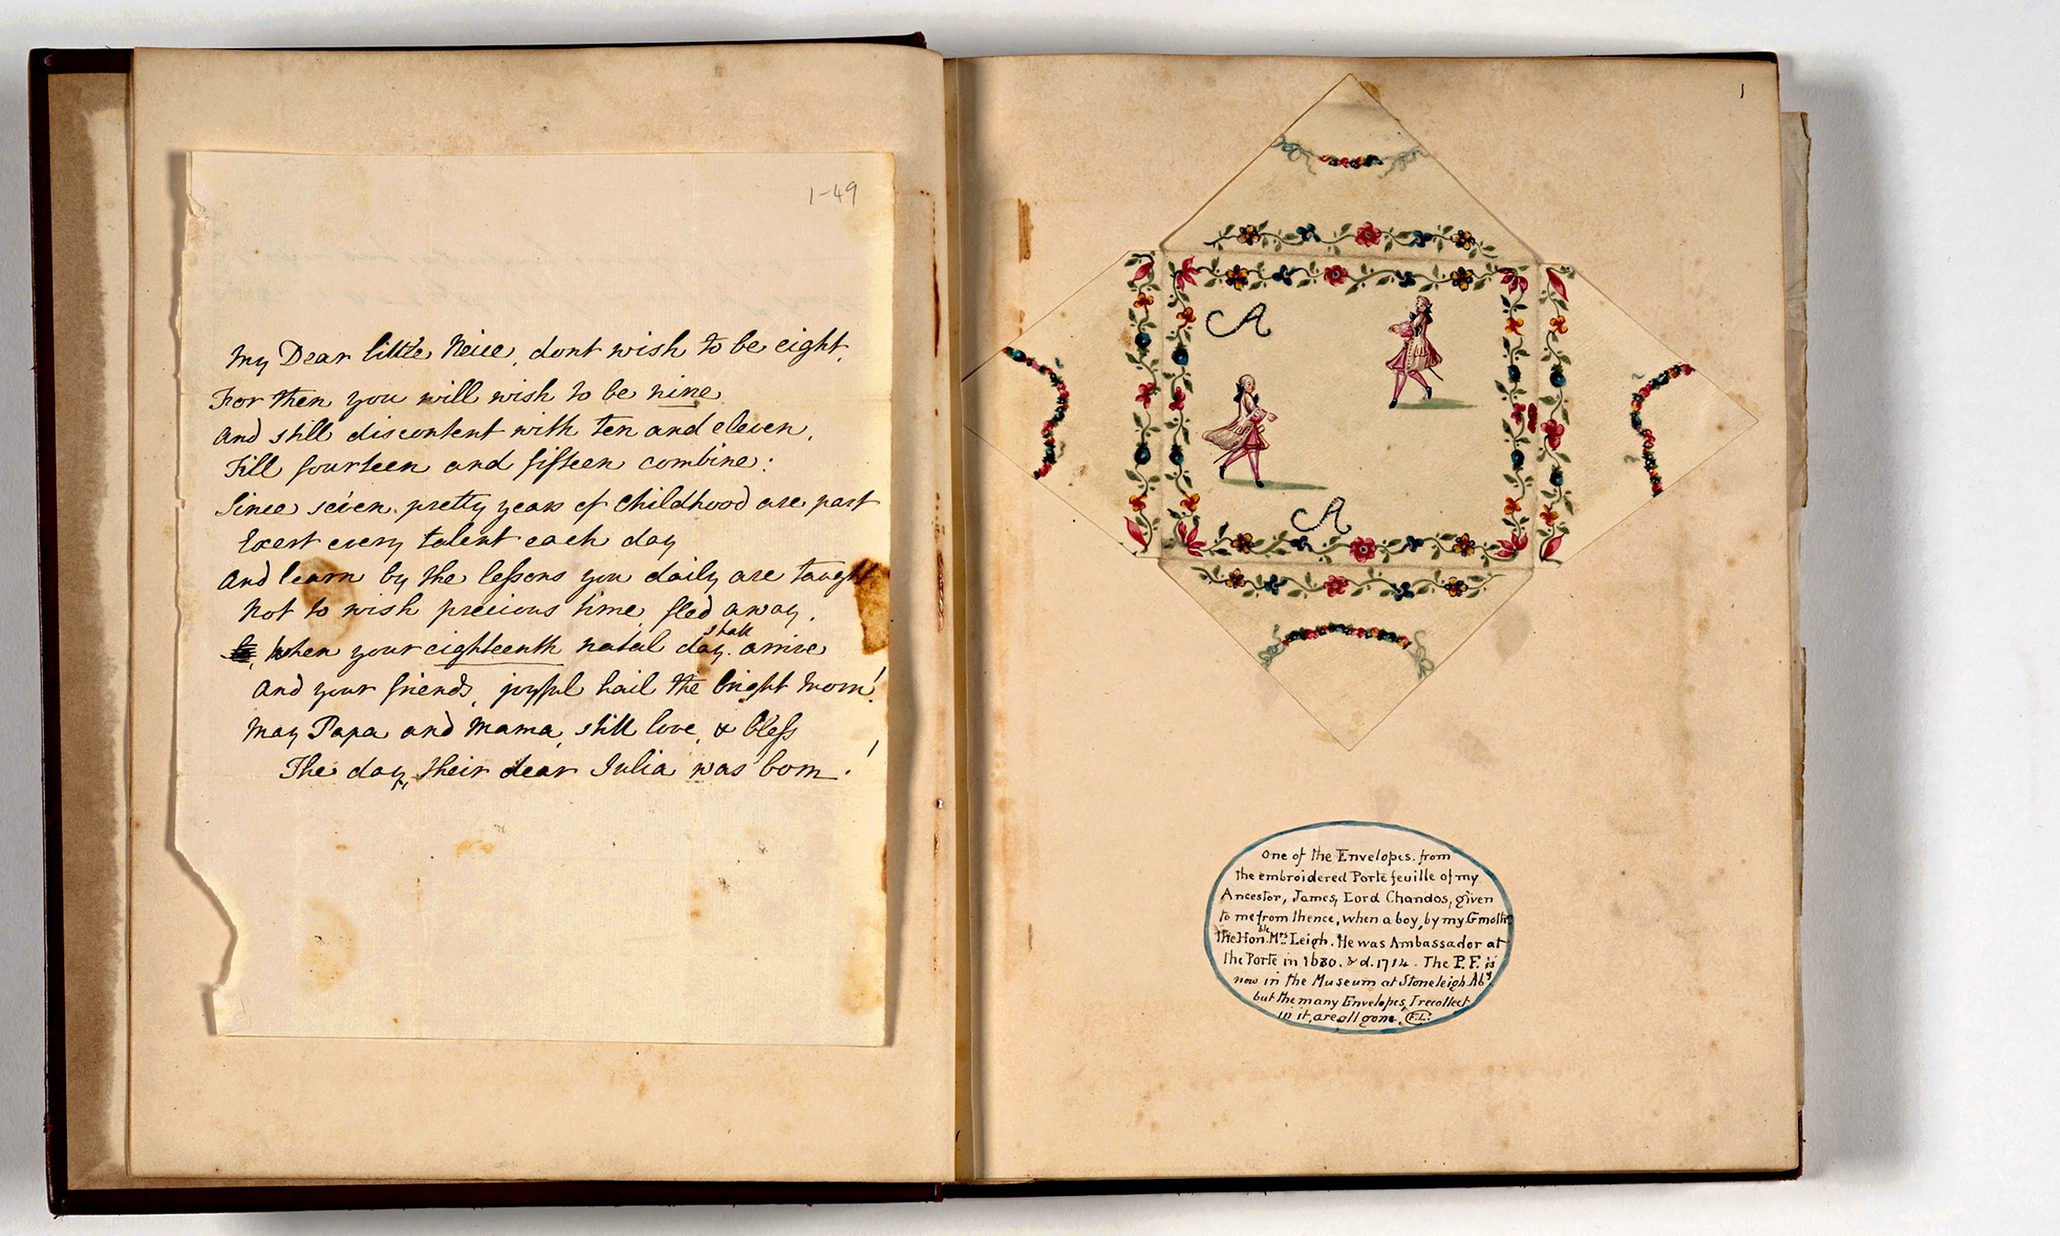 1-49
My Dear little Neice, dont wish to be eight,
For then you will wish to be nine,
And still discontent with ten and eleven,
Till fourteen and fifteen combine:
Since seven pretty years of Childhood are past
Exert every talent each day
And learn by the lessons you daily are taught
Not to wish precious time, fled away.
When your eighteenth natal day shall arrive
And your friends, joyful hail the bright Morn!
May Papa and Mama, still love, & bless
The day, their dear Julia was born.!
1
A
A
One of the Envelopes from
the embroidered Porte feuille of my
Ancestor, James, Lord Chandos, given
to me from thence, when a boy, by my Gmoth
the Honble Mrs Leigh. He was Ambassador at
the Porte in 1680. & d. 1714. The P.F. is
now in the Museum at Stoneleigh Aby
but the many Envelopes, I recollect
in it, are all gone. F.L.